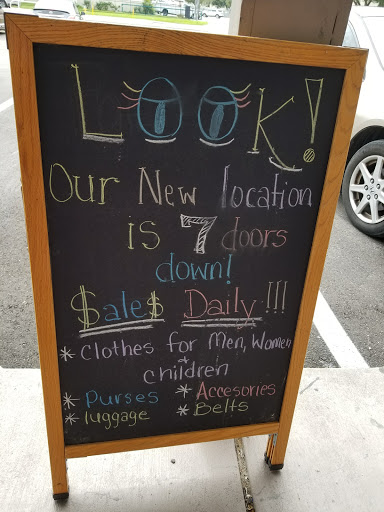 LOOK!
Our New location
is 7 doors
down!
$ale$ Daily!!!
* Clothes for Men, Women
&
children
* Purses * Accesories
* luggage * Belts